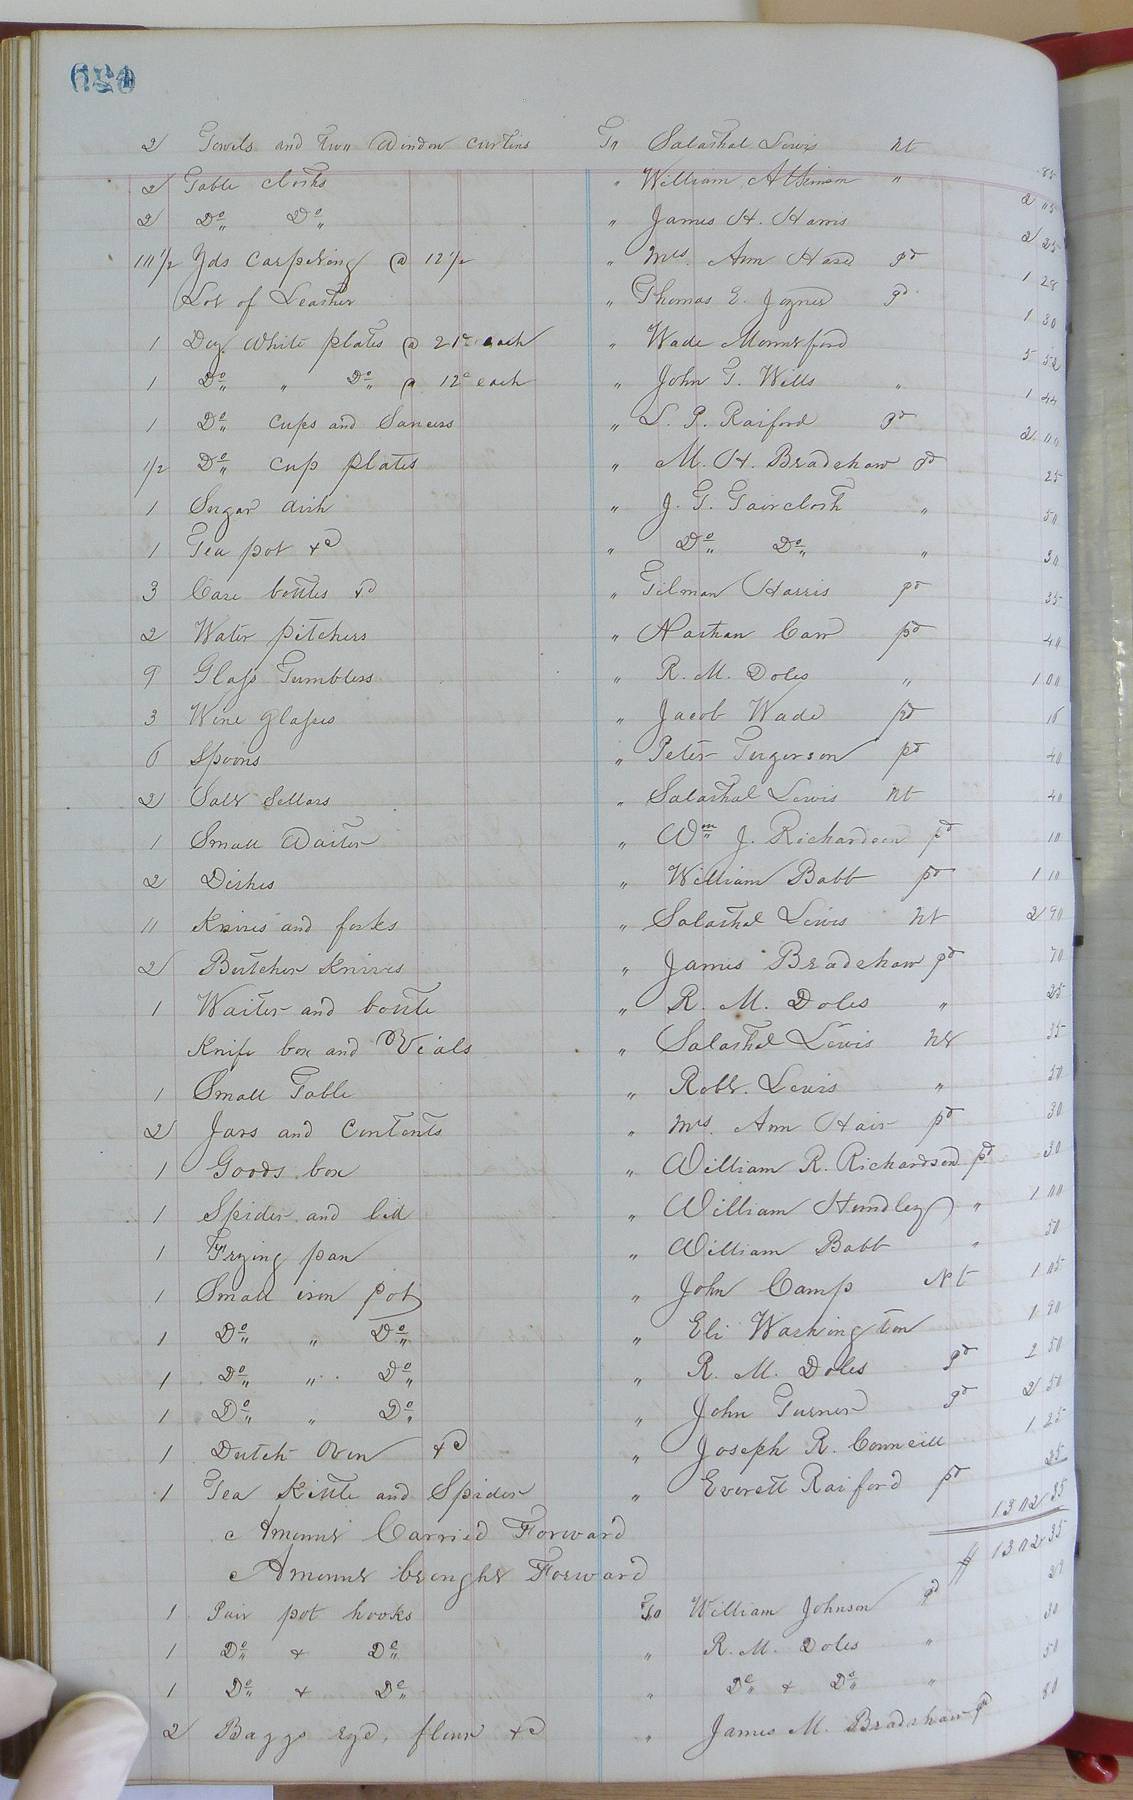 2 Towels and two Window curtins To Salathal Lewis Nt 85
2 Table cloths " William Atkinson " 2 05
2 Do Do " James H. Harris 2 25
10 1/2 Yds Carpeting @ 12 1/2 " Mrs. Ann Hare pd 1 28
Lot of Leather " Thomas E. Joyner pd 1 30
1 Doz. White plates @ 21c each " Wade Mounsford 5 52
1 Do " Do @ 12c each " John T. Wills " 1 44
1 Do cups and Saucers " L. P. Raiford pd 2 00
1/2 Do cup plates " M. H. Bradshaw pd 25
1 Sugar dish " J. T. Faircloth " 50
1 Tea pot &c " Do Do " 30
3 Case bottles &c " Tilman Harris pd 35
2 Water pitchers " Nathan Carr pd 40
9 Glass Tumblers " R. M. Doles " 1 00
3 Wine glasses " Jacob Wade pd 16
6 Spoons " Peter Furgerson pd 40
2 Salt Sellars " Salathal Lewis Nt 40
1 Small Waiter " Wm J. Richardson pd 10
2 Dishes " William Babb pd 1 10
11 Knives and forks " Salathal Lewis Nt 2 90
2 Butcher Knives " James Bradshaw pd 70
1 Waiter and bottle " R. M. Doles " 25
Knife box and Vials " Salathal Lewis Nt 35
1 Small Table " Robt. Lewis " 50
2 Jars and Contents " Mrs. Ann Hair pd 30
1 Goods box " William R. Richardson pd 30
1 Spider and lid " William Hundley " 1 00
1 Frying pan " William Babb " 50
1 Small iron pot " John Camp Nt 1 05
1 Do " Do " Eli Washington 1 90
1 Do " Do " R. M. Doles pd 2 50
1 Do " Do " John Turner pd 2 50
1 Dutch Oven &c " Joseph R. Conneill 1 25
1 Tea Kittle and Spider " Everett Raiford pd 25
Amount Carried Forward 1302 35
Amount brought Forward $ 1302 35
1 Pair pot hooks To William Johnson pd 20
1 Do & Do " R. M. Doles " 30
1 Do & Do " Do & Do " 50
2 Baggs Eyd, flour &c " James M. Bradshaw pd 80